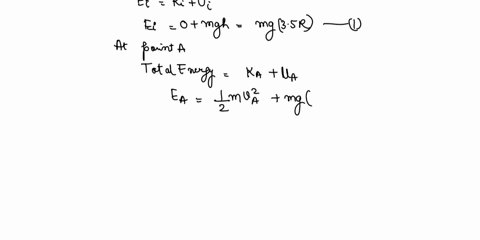 Ei = Ki + Ui
Ei = 0 + mgh = mg(3.5R) —— (1)
At point A
Total Energy = KA + UA
EA = 1/2 m vA² + mg(